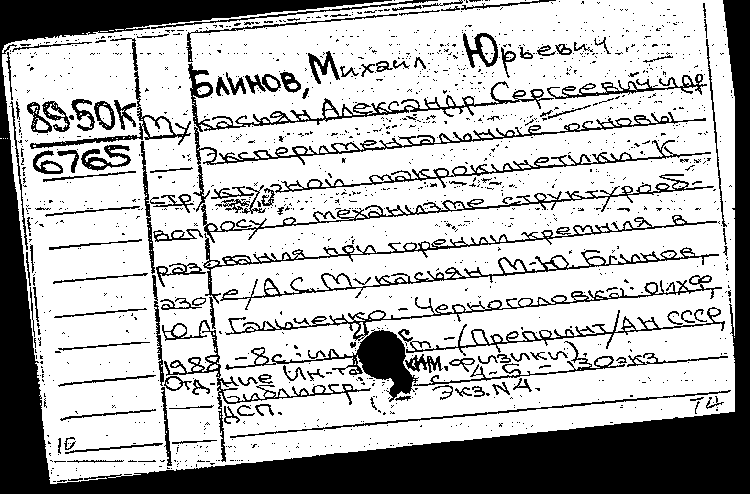 БЛИНОВ, Михаил Юрьевич
89-50К
6765
Мукасьян, Александр Сергеевич и др
Экспериментальные основы
структурной макрокинетики: К
вопросу о механизме структурооб-
разования при горении кремния в
азоте / А.С. Мукасьян, М.Ю. Блинов,
Ю.А. Гальченко. - Черноголовка: ОИХФ,
1988. - 8с.: ил. - (Препринт/АН СССР,
Отд-ние Ин-та хим. физики)
Библиогр. с. 4-6. - 130 экз.
ДСП. Экз. N 4.
10
74